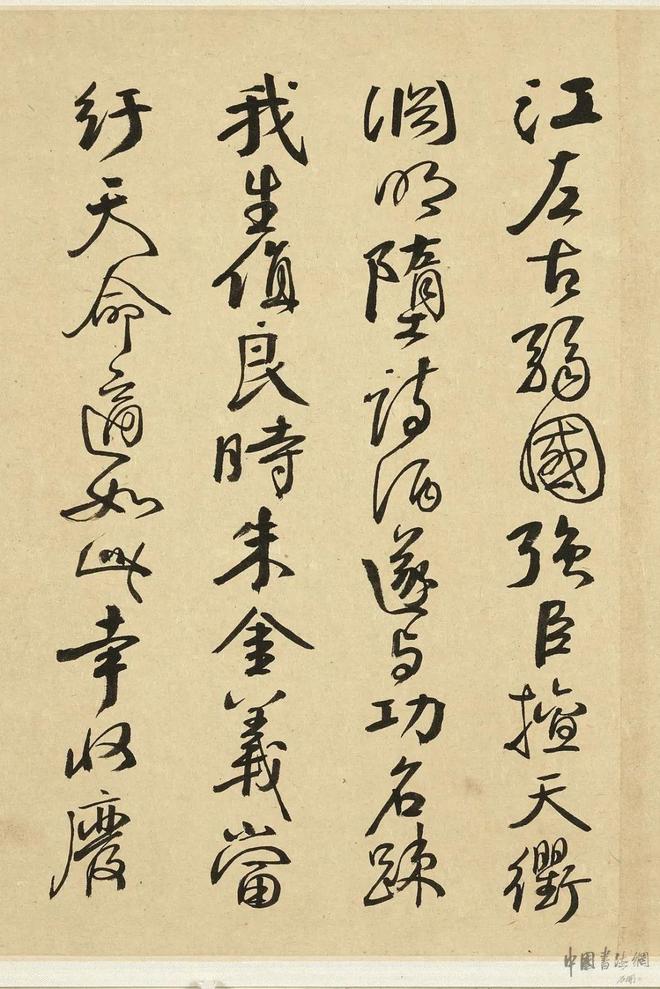 江左古弱國強臣擅天衢
淵明墮詩酒遂与功名疎
我生值良時朱金義當
紆天命適如此幸收廢
中國書法網